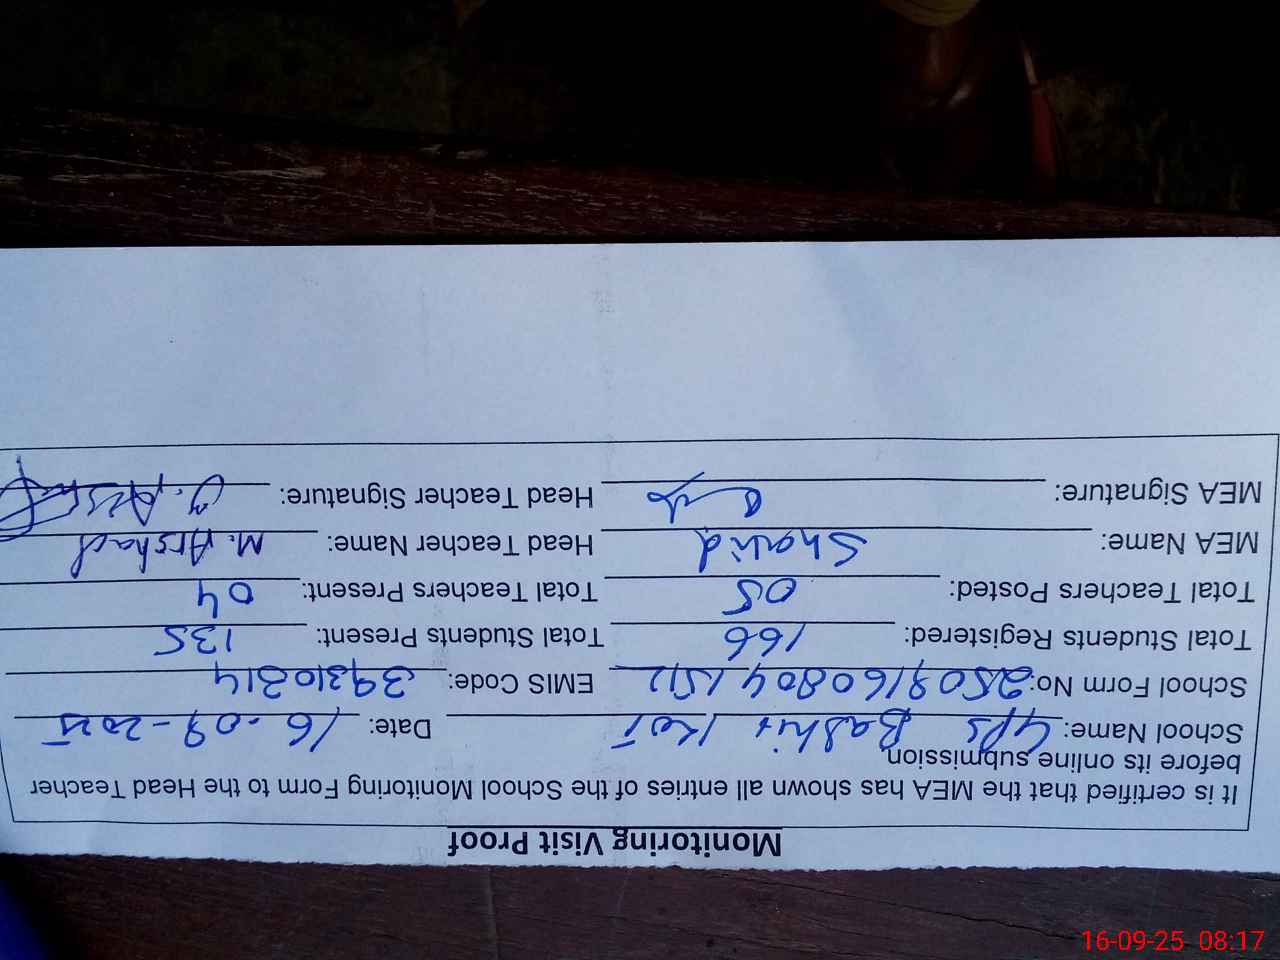 Monitoring Visit Proof
It is certified that the MEA has shown all entries of the School Monitoring Form to the Head Teacher
before its online submission
School Name: GPS Bashir Kot Date: 16-09-2025
School Form No: 25091608041512 EMIS Code: 39310314
Total Students Registered: 166 Total Students Present: 135
Total Teachers Posted: 05 Total Teachers Present: 04
MEA Name: Shahid Head Teacher Name: M. Arshad
MEA Signature: Head Teacher Signature:
16-09-25 08:17